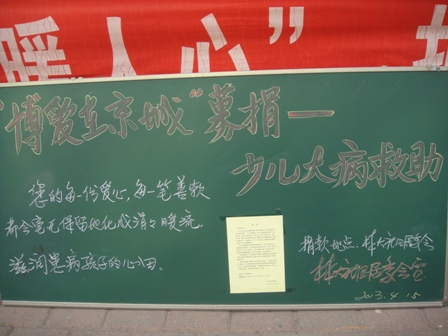 暖人心”
“博爱在京城”募捐—
少儿大病救助
您的每一份爱心,每一笔善款
都会毫无保留地化成涓涓暖流,
滋润患病孩子的心田.
捐款地点:林大社区居委会
林大社区居委会宣
2013.4.15